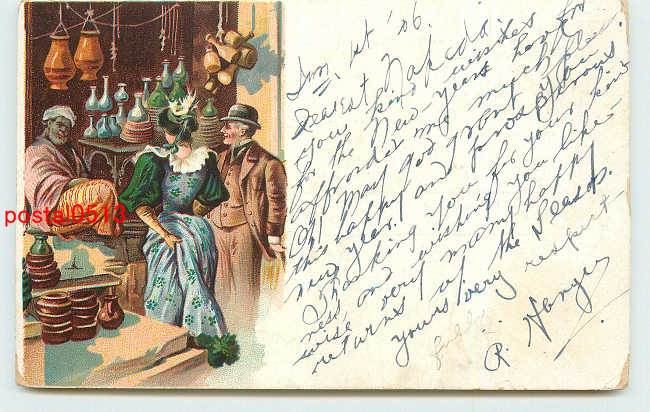 Jan, 1st '06.
Dearest
Your kind wishes to
for the New-years have
afforded me much
May God grant you
this happy and prosperous
new year! and
Thanking you for your kind
ness, and wishing you like-
wise very many happy
returns of the Season.
yours very respect-
fully
R.
postal0513